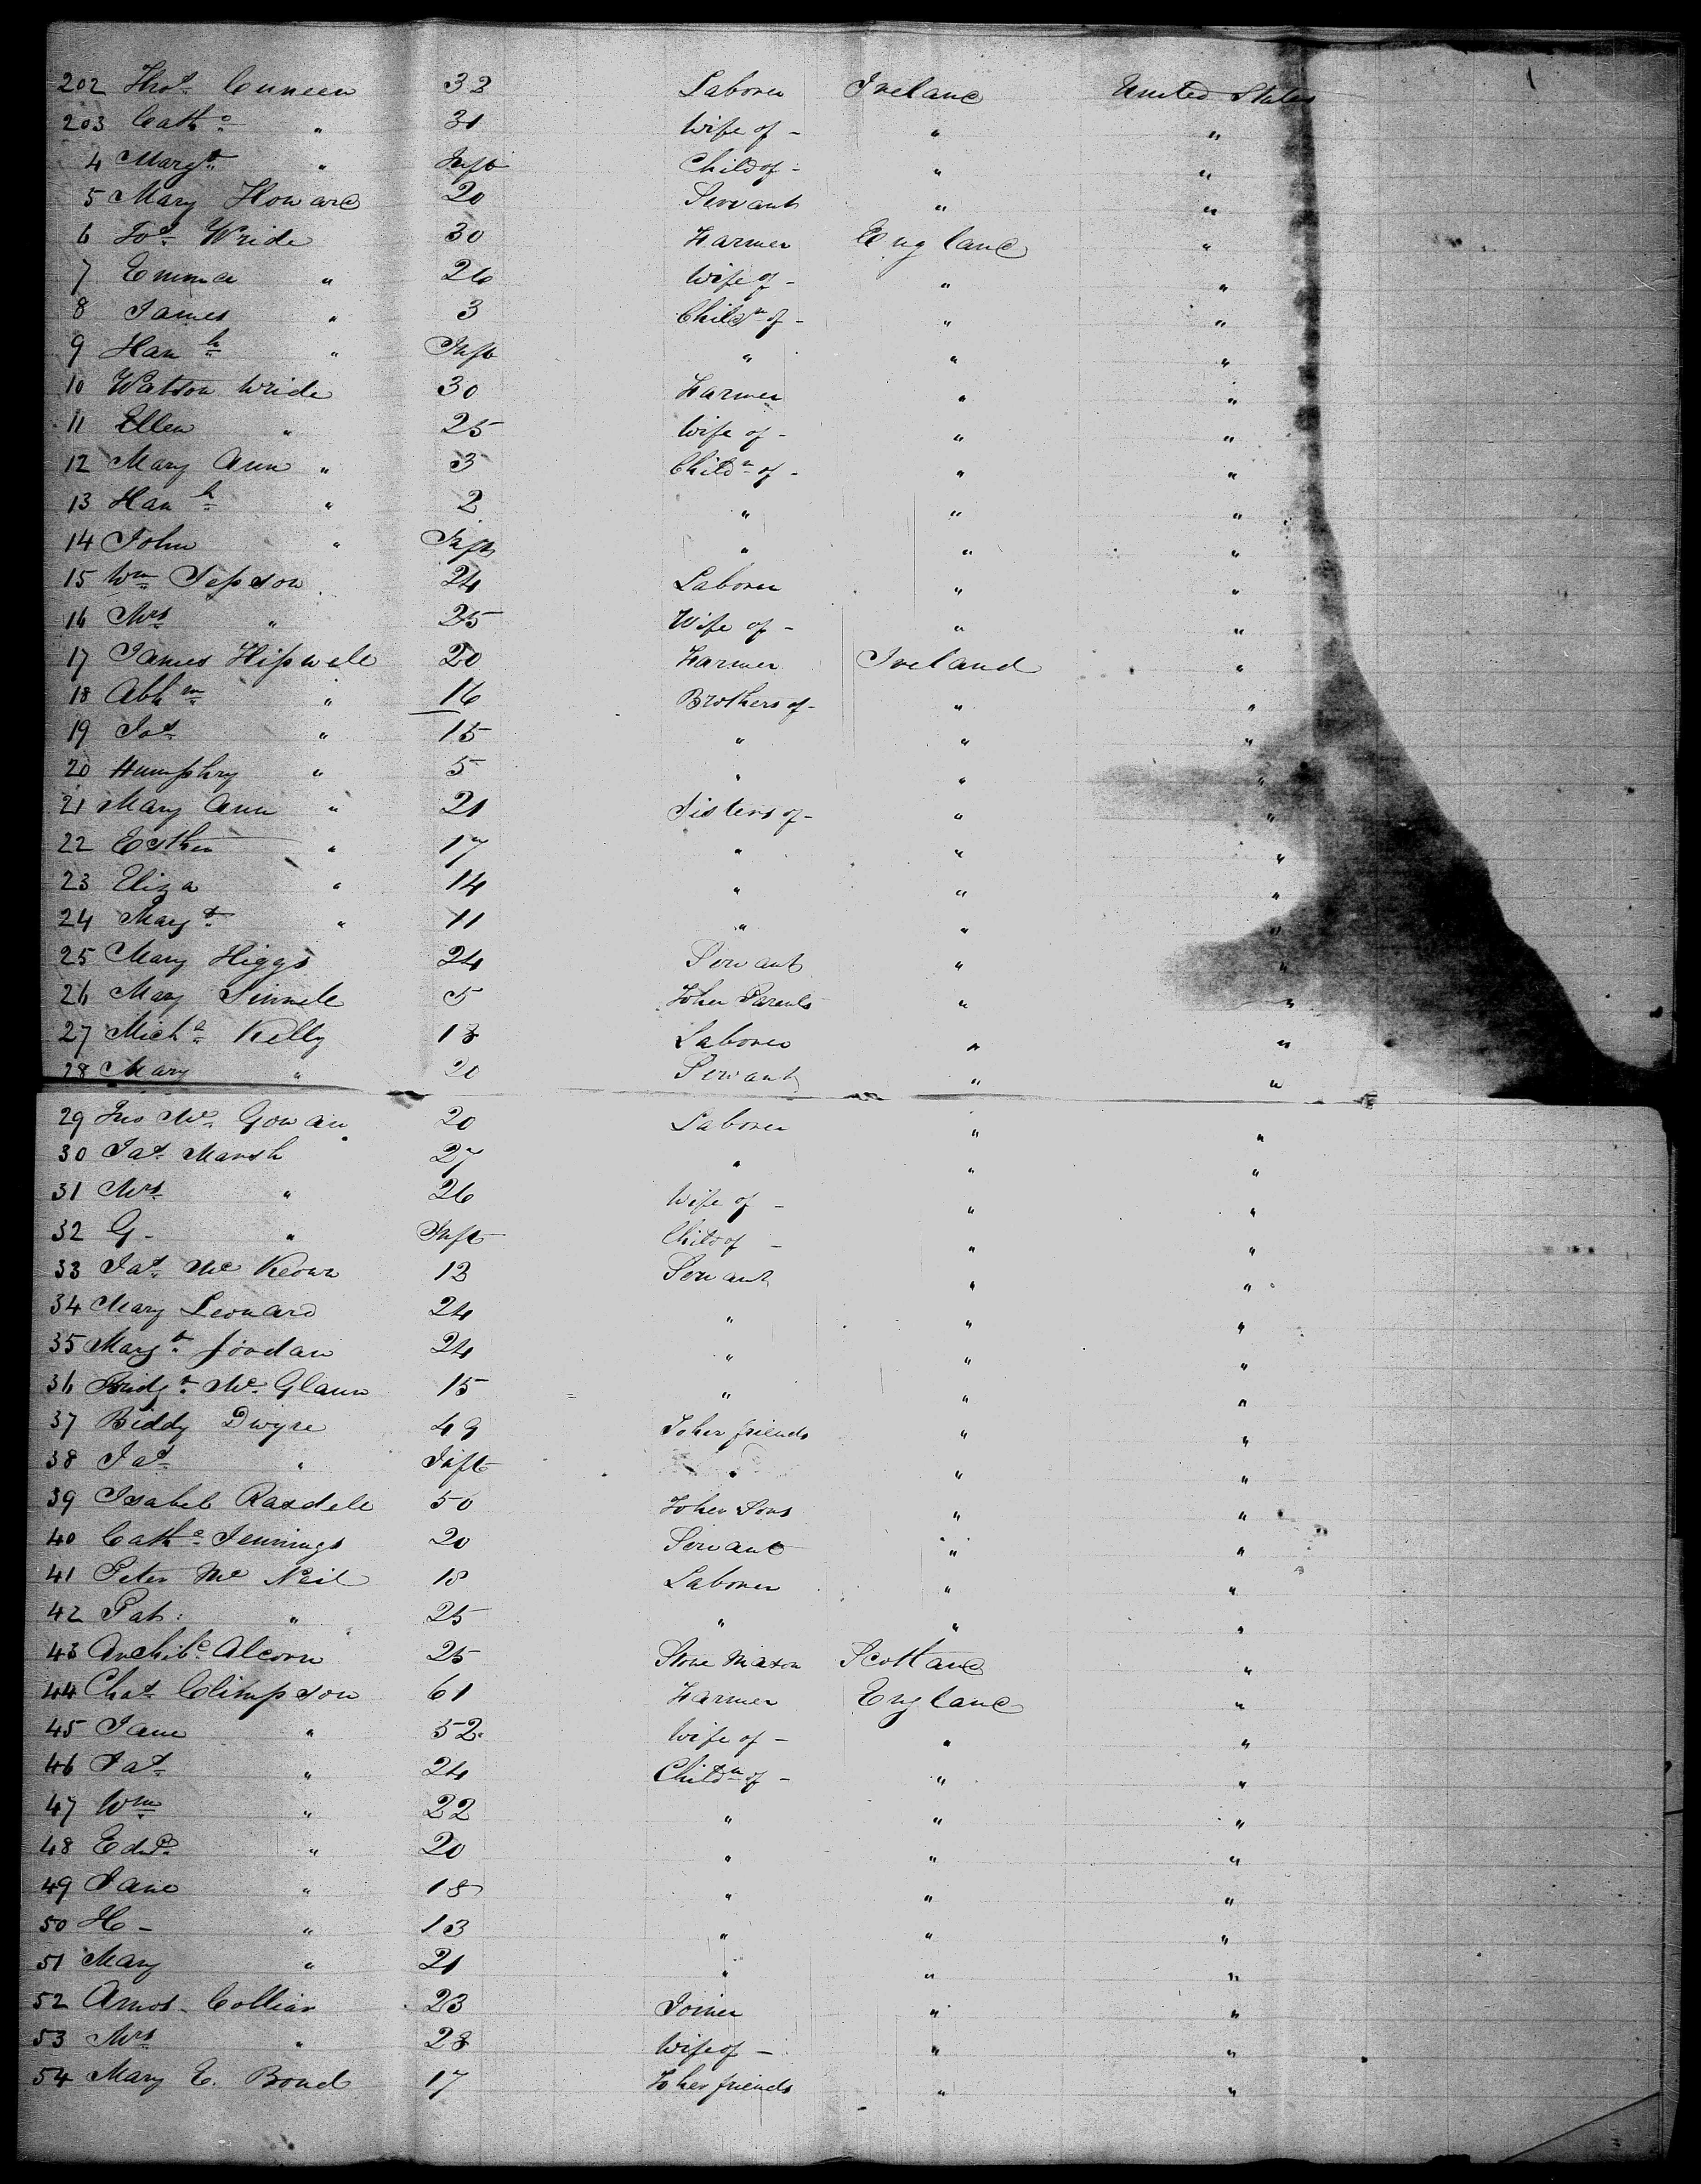 202 Thos. Cuneen 32 Laborer Ireland United States
203 Cathe. " 31 Wife of - " "
4 Margt. " Inft Child of - " "
5 Mary Howard 20 Servant " "
6 Jos. Wride 30 Farmer England "
7 Emma " 26 Wife of - " "
8 James " 3 Childn of - " "
9 Hanh " Inft " " "
10 Watson Wride 30 Farmer " "
11 Ellen " 25 Wife of - " "
12 Mary Ann " 3 Childn of - " "
13 Hanh " 2 " " "
14 John " Inft " " "
15 Wm Jepson 24 Laborer " "
16 Mrs " 25 Wife of - " "
17 James Hipwell 20 Farmer Ireland "
18 Abhm " 16 Brothers of - " "
19 Jos. " 15 " " "
20 Humphry " 5 " " "
21 Mary Ann " 21 Sisters of - " "
22 Esther " 17 " " "
23 Eliza " 14 " " "
24 Margt. " 11 " " "
25 Mary Higgs 24 Servant " "
26 Mary 5 To her Parents " "
27 Michl. Kelly 18 Laborer " "
28 Mary " 20 Servant " "
29 Jno Mc. Gowan 20 Laborer " "
30 Jas. Marsh 27 " " "
31 Mrs. " 26 Wife of - " "
32 G - " Inft Child of - " "
33 Jas. Mc Keown 12 Servant " "
34 Mary Leonard 24 " " "
35 Margt. Jordan 24 " " "
36 Bridgt. Mc. Glann 15 " " "
37 Biddy Dwyre 49 To her friends " "
38 Jas. " Inft " " "
39 Isabel Rasdell 50 To her Sons " "
40 Cathe. Jennings 20 Servant " "
41 Peter Mc Neil 18 Laborer " "
42 Pat: " 25 " " "
43 Archibd. Alcorn 25 Stone Mason Scotland "
44 Chas. Climpson 61 Farmer England "
45 Jane " 52 Wife of - " "
46 Jas. " 24 Childn of - " "
47 Wm " 22 " " "
48 Edwd. " 20 " " "
49 Jane " 18 " " "
50 H - " 13 " " "
51 Mary " 21 " " "
52 Amos. Collier 23 Joiner " "
53 Mrs. " 28 Wife of - " "
54 Mary E. Bond 17 To her friends " "